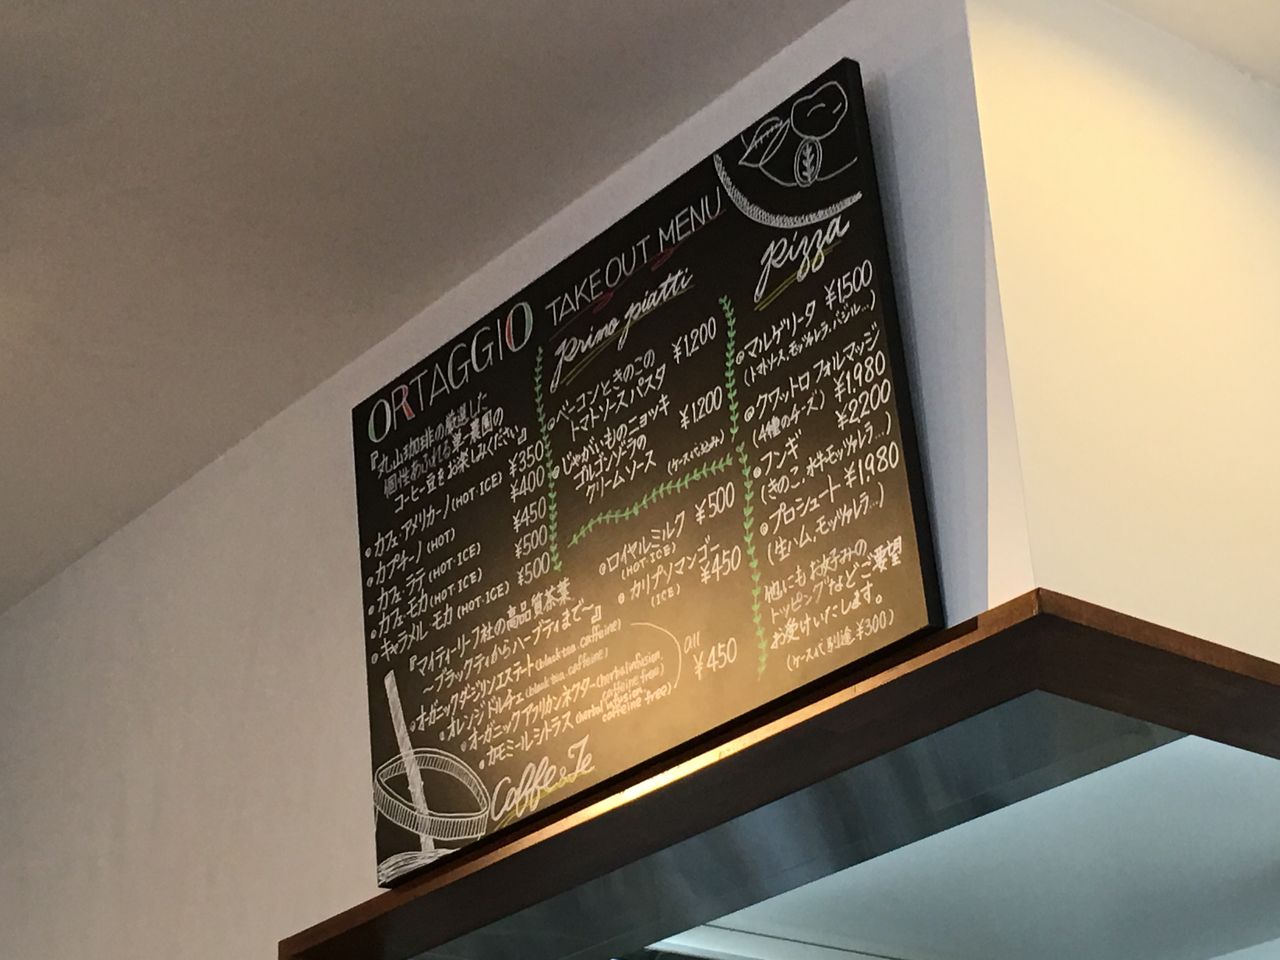 ORTAGGIO TAKE OUT MENU
『丸山珈琲の厳選した
個性あふれる単一農園の
コーヒー豆をお楽しみください』
カフェ・アメリカーノ(HOT・ICE) ¥350
カプチーノ(HOT) ¥400
カフェ・ラテ(HOT・ICE) ¥450
カフェ・モカ(HOT・ICE) ¥500
キャラメル・モカ(HOT・ICE) ¥500
『マイティーリーフ社の高品質茶葉
～ブラックティからハーブティまで～』
オーガニックダージリンエステート(black tea. caffeine)
オレンジドルチェ(black tea. caffeine)
オーガニックアフリカンネクター(herbal infusion. caffeine free)
カモミールシトラス(herbal infusion. caffeine free)
all
¥450
Caffe & Te
primo piatti
ベーコンときのこの
トマトソースパスタ ¥1,200
じゃがいものニョッキ
ゴルゴンゾーラの
クリームソース ¥1,200
(ケース代込み)
ロイヤルミルク ¥500
(HOT・ICE)
カリプソマンゴー ¥450
(ICE)
pizza
マルゲリータ ¥1,500
(トマトソース、モッツァレラ、バジル...)
クワットロ フォルマッジ
(4種のチーズ) ¥1,980
フンギ ¥2200
(きのこ、水牛モッツァレラ...)
プロシュート ¥1,980
(生ハム、モッツァレラ...)
他にもお好みの
トッピングなどご要望
お受けいたします。
(ケース代 別途 ¥300)